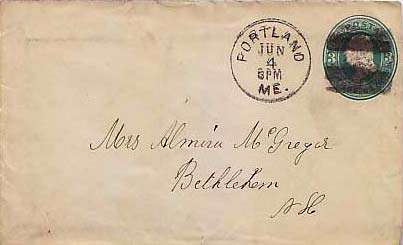 PORTLAND
JUN
4
6PM
ME.
POSTA
3
Mrs Almira McGregor
Bethlehem
NH